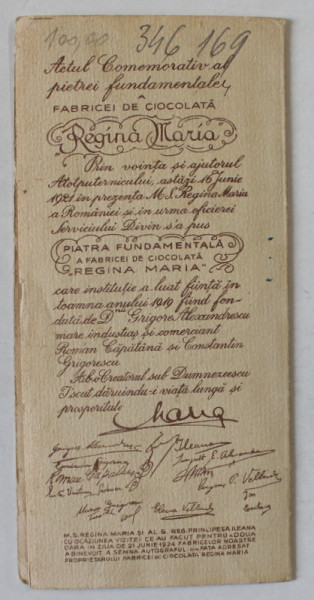 100,00 346 169
Actul Comemorativ al
pietrei fundamentale
A
FABRICEI DE CIOCOLATĂ
Regina Maria
Prin voința și ajutorul
Atotputernicului, astăzi 16 Junie
1921 în prezența M.S. Regina Maria
a României și în urma oficierei
Serviciului Divin s'a pus
PIATRA FUNDAMENTALĂ
A FABRICEI DE CIOCOLATĂ
"REGINA MARIA"
care instituție a luat ființă în
toamna anului 1919 fiind fon-
dată de Dnii Grigore Alexandrescu
mare industriaș și comerciant
Roman Căpățână și Constantin
Grigorescu
Aibe Creatorul sub Dumnezeescu
I scut dăruindu-i viață lungă și
prosperitate
Maria
Ileana
M.S. REGINA MARIA ȘI A.L. REG. PRINCIPESA ILEANA
CU OCAZIUNEA VIZITEI CE AU FĂCUT PENTRU A DOUA
OARĂ ÎN ZIUA DE 21 JUNIE 1924 FABRICELOR NOASTRE
A BINEVOIT A SEMNA AUTOGRAFUL DIN FAȚĂ ADRESAT
PROPRIETARULUI FABRICEI DE CIOCOLATĂ, REGINA MARIA